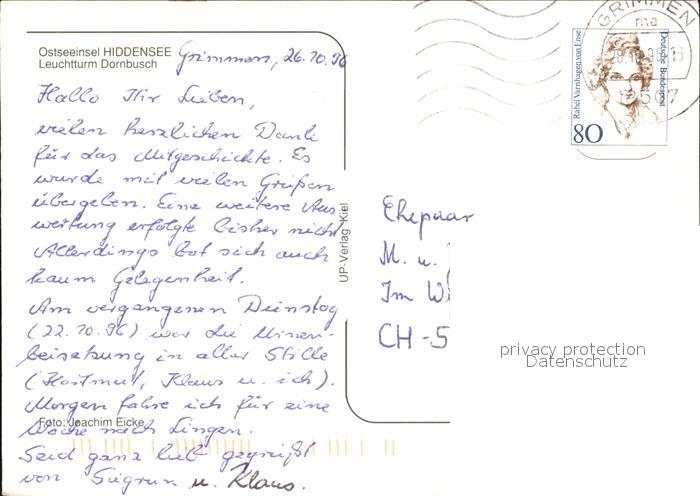 Ostseeinsel HIDDENSEE
Leuchtturm Dornbusch
Grimmen, 26.10.96
Hallo Ihr Lieben,
vielen herzlichen Dank
für das Mitgeschickte. Es
wurde mit vielen Grüßen
übergeben. Eine weitere Aus
wertung erfolgte bisher nicht
Allerdings bot sich auch
kaum Gelegenheit.
Am vergangenen Dienstag
(22.10.96) war die Urnen-
beisetzung in aller Stille
(Hartmut, Klaus u. ich).
Morgen fahre ich für eine
Woche nach Lingen.
Seid ganz lieb gegrüßt
von Sigrun u. Klaus.
Foto: Joachim Eicke
UP-Verlag Kiel
GRIMMEN
ma
Rahel Varnhagen von Ense
Deutsche Bundespost
80
Ehepaar
M. u.
Im W
CH-5
privacy protection
Datenschutz